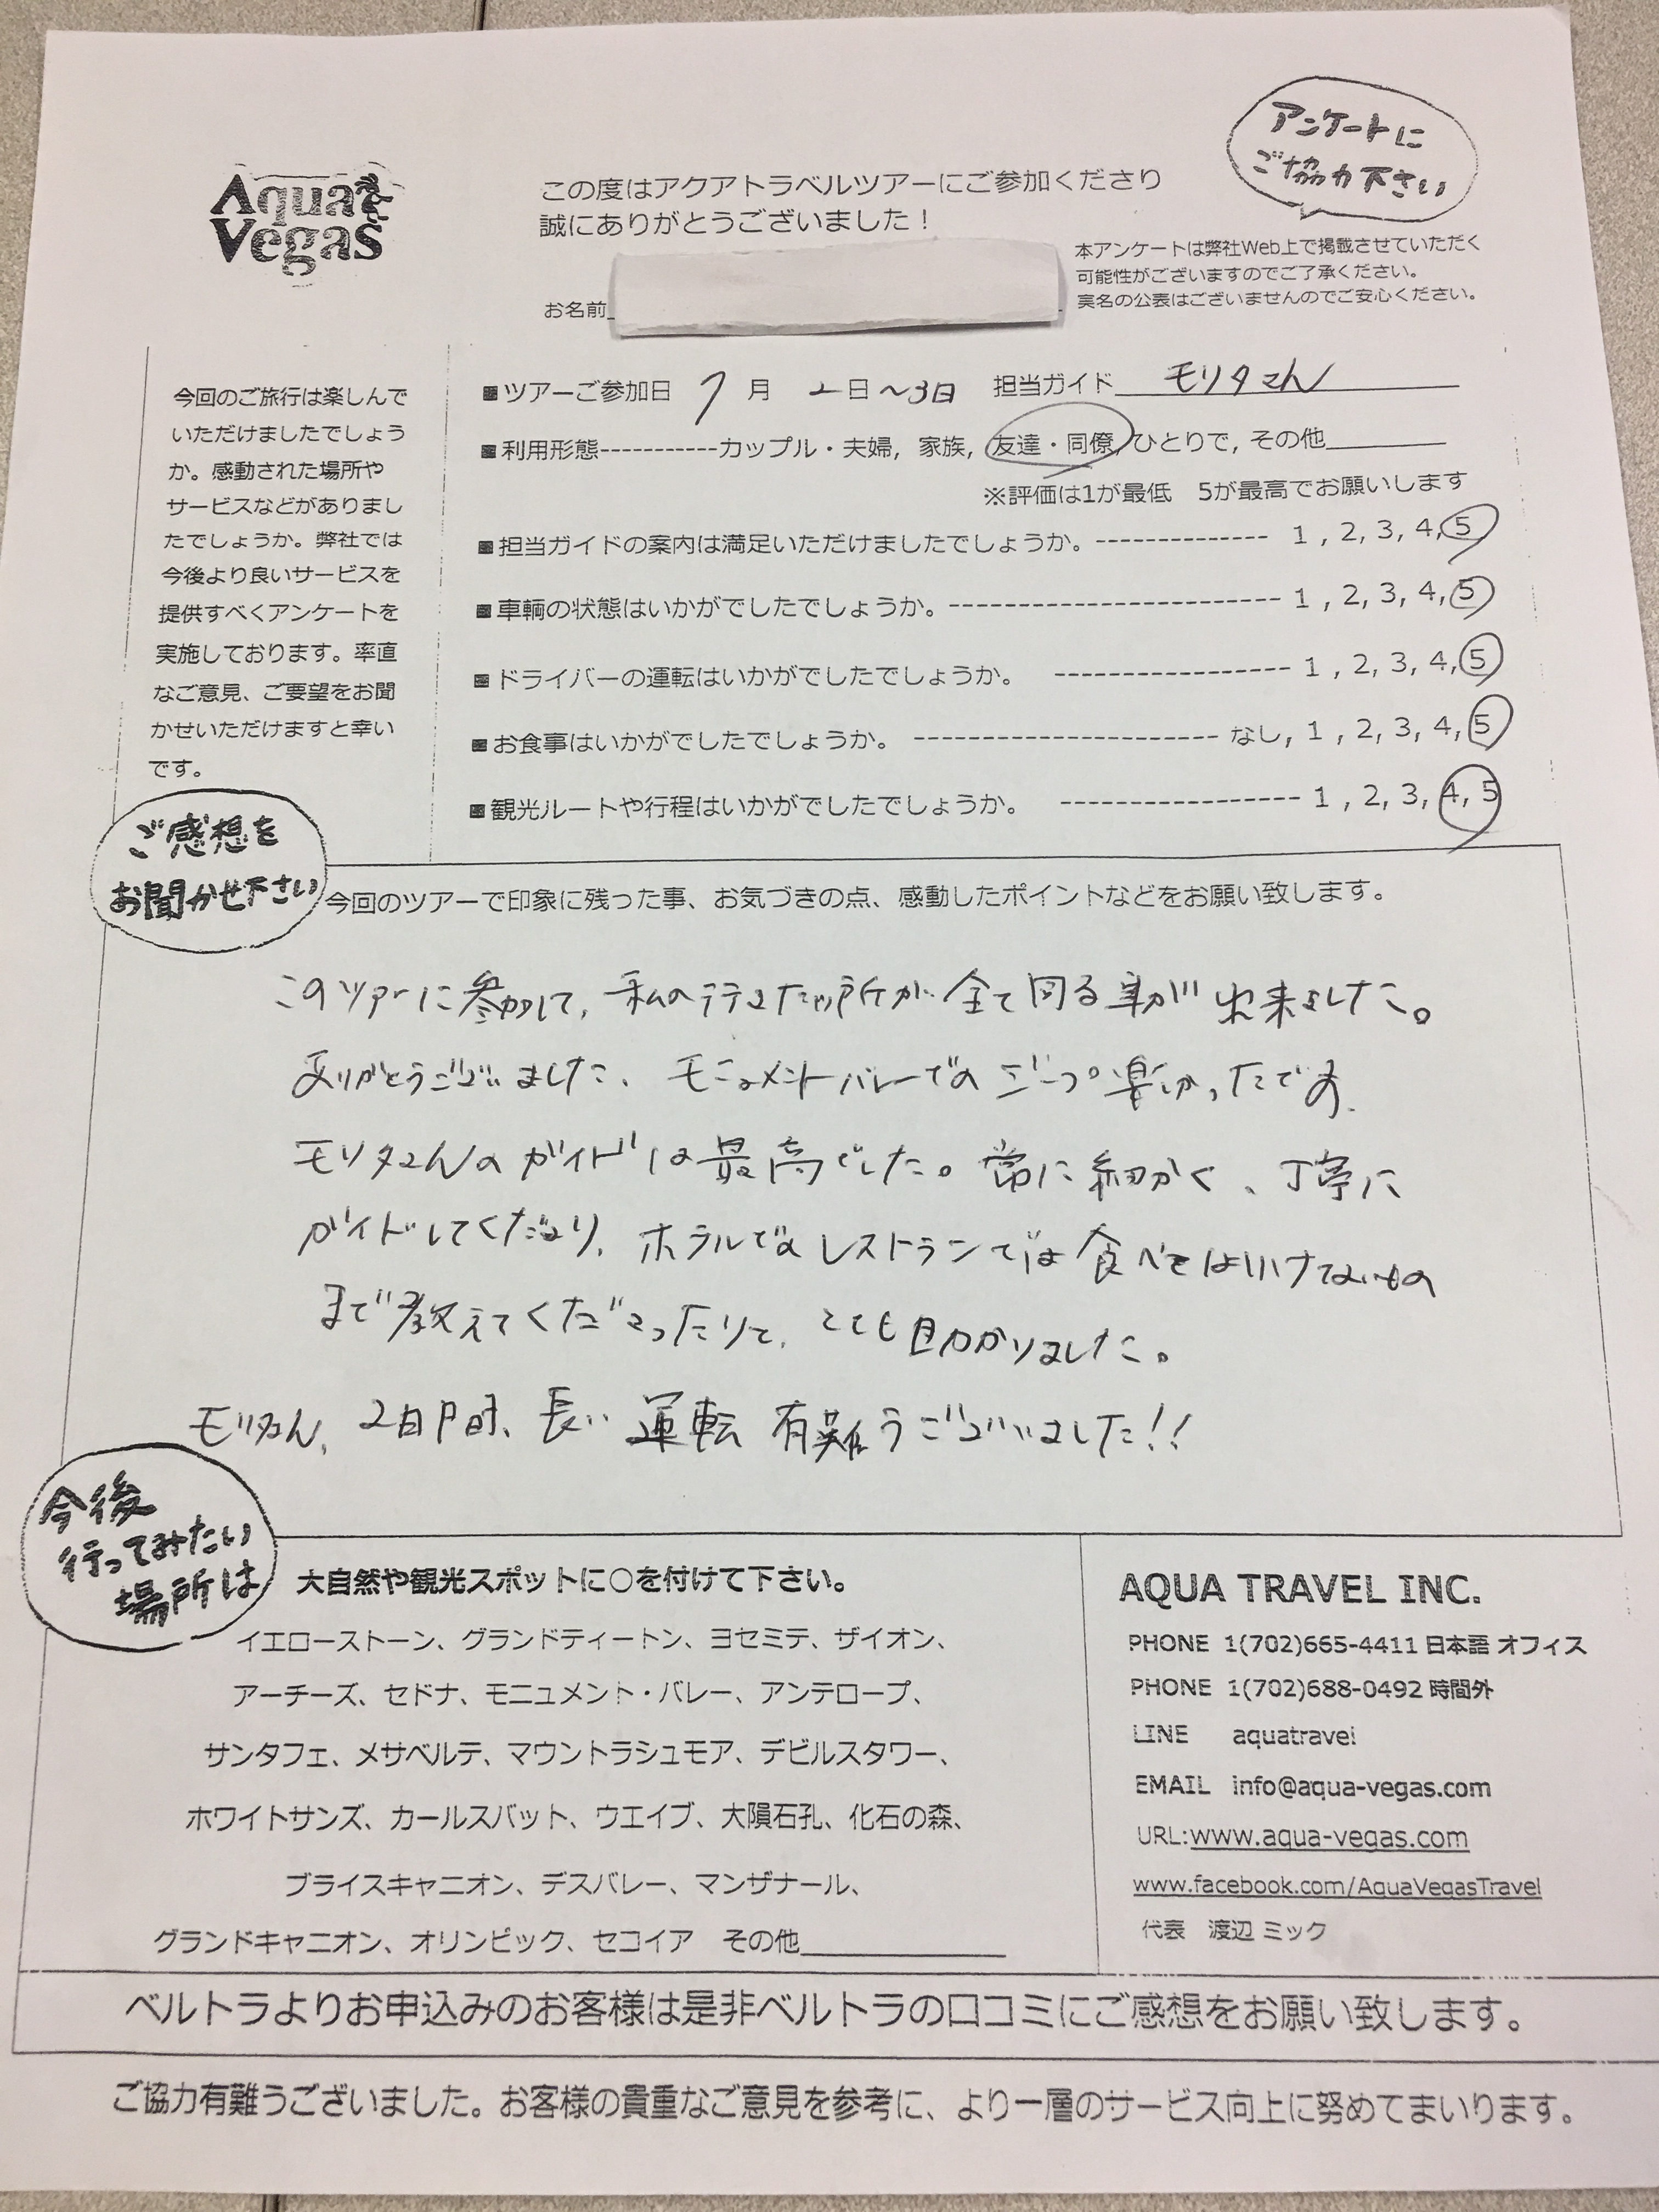 アンケートに
ご協力下さい
Aqua
Vegas
この度はアクアトラベルツアーにご参加くださり
誠にありがとうございました！
本アンケートは弊社Web上で掲載させていただく
可能性がございますのでご了承ください。
実名の公表はございませんのでご安心ください。
お名前
今回のご旅行は楽しんで
いただけましたでしょう
か。感動された場所や
サービスなどがありまし
たでしょうか。弊社では
今後より良いサービスを
提供すべくアンケートを
実施しております。率直
なご意見、ご要望をお聞
かせいただけますと幸い
です。
■ツアーご参加日 7月 2日～3日 担当ガイド モリタさん
■利用形態-----------カップル・夫婦, 家族, 友達・同僚, ひとりで, その他
※評価は1が最低 5が最高でお願いします
■担当ガイドの案内は満足いただけましたでしょうか。-------------- 1 , 2, 3, 4, 5
■車輌の状態はいかがでしたでしょうか。--------------------------- 1 , 2, 3, 4, 5
■ドライバーの運転はいかがでしたでしょうか。 ------------------- 1 , 2, 3, 4, 5
■お食事はいかがでしたでしょうか。------------------------- なし, 1 , 2, 3, 4, 5
■観光ルートや行程はいかがでしたでしょうか。 -------------------- 1 , 2, 3, 4, 5
ご感想を
お聞かせ下さい
今回のツアーで印象に残った事、お気づきの点、感動したポイントなどをお願い致します。
このツアーに参加して、私の行きたい所が全て回る事が出来ました。
ありがとうございました、モニュメントバレーでのジープ楽しかったです。
モリタさんのガイドは最高でした。常に細かく、丁寧に
ガイドしてくださり、ホテルでのレストランでは食べてはいけないもの
まで教えてくださったりと、とても助かりました。
モリタさん、2日間、長い運転有難うございました!!
今後
行ってみたい
場所は
大自然や観光スポットに○を付けて下さい。
イエローストーン、グランドティートン、ヨセミテ、ザイオン、
アーチーズ、セドナ、モニュメント・バレー、アンテロープ、
サンタフェ、メサベルテ、マウントラシュモア、デビルスタワー、
ホワイトサンズ、カールスバット、ウエイブ、大隕石孔、化石の森、
ブライスキャニオン、デスバレー、マンザナール、
グランドキャニオン、オリンピック、セコイア その他
AQUA TRAVEL INC.
PHONE 1(702)665-4411 日本語 オフィス
PHONE 1(702)688-0492 時間外
LINE aquatravel
EMAIL info@aqua-vegas.com
URL:www.aqua-vegas.com
www.facebook.com/AquaVegasTravel
代表 渡辺 ミック
ベルトラよりお申込みのお客様は是非ベルトラの口コミにご感想をお願い致します。
ご協力有難うございました。お客様の貴重なご意見を参考に、より一層のサービス向上に努めてまいります。